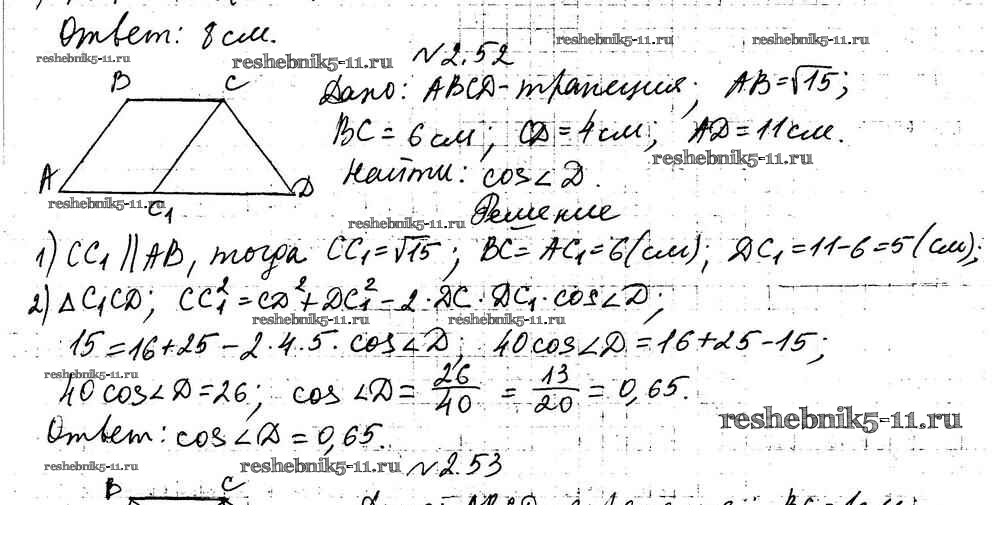 Ответ: 8 см.
reshebnik5-11.ru
reshebnik5-11.ru
reshebnik5-11.ru
reshebnik5-11.ru
№2.52
B C
Дано: ABCD-трапеция; AB=√15;
BC=6см; CD=4см; AD=11см.
reshebnik5-11.ru
Найти: cos∠D.
A C₁ D
reshebnik5-11.ru
reshebnik5-11.ru
Решение
1) CC₁ || AB, тогда CC₁=√15; BC=AC₁=6(см); DC₁=11-6=5(см);
2) ΔC₁CD; CC₁²=CD²+DC₁²-2·DC·DC₁·cos∠D;
reshebnik5-11.ru reshebnik5-11.ru
15=16+25-2·4·5·cos∠D; 40cos∠D=16+25-15;
reshebnik5-11.ru
40cos∠D=26; cos∠D=26/40=13/20=0,65.
reshebnik5-11.ru
Ответ: cos∠D=0,65.
reshebnik5-11.ru reshebnik5-11.ru
№2.53
B C